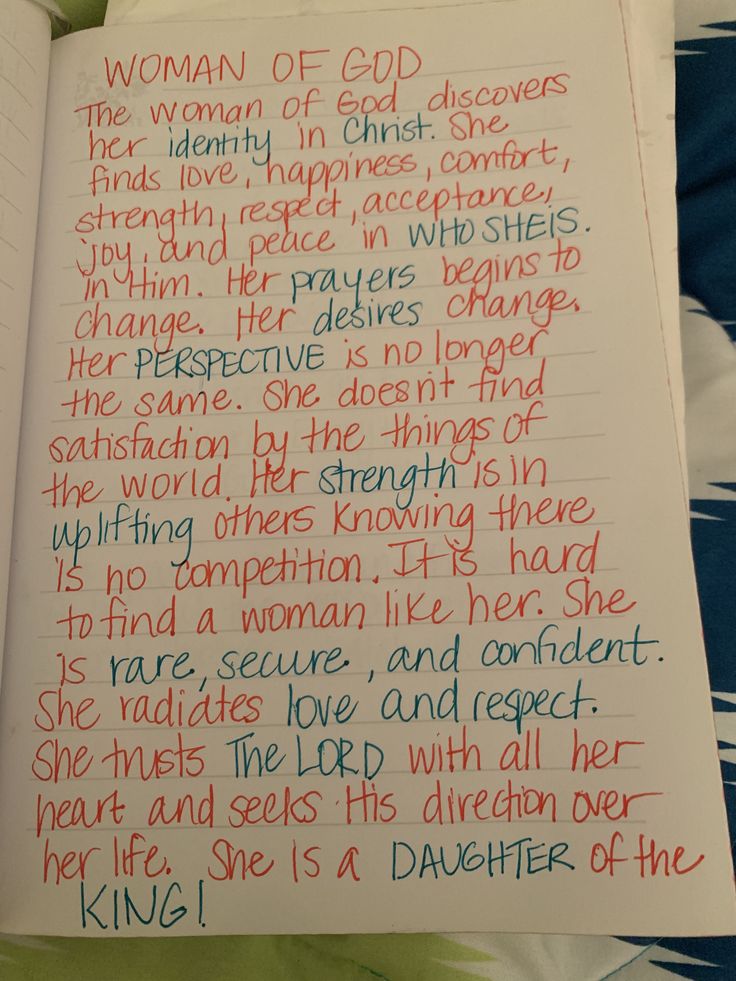 WOMAN OF GOD
The woman of God discovers
her identity in Christ. She
finds love, happiness, comfort,
strength, respect, acceptance,
joy, and peace in WHO SHE IS.
in Him. Her prayers begins to
change. Her desires change.
Her PERSPECTIVE is no longer
the same. She doesn't find
satisfaction by the things of
the world. Her strength is in
uplifting others knowing there
is no competition. It is hard
to find a woman like her. She
is rare, secure, and confident.
She radiates love and respect.
She trusts The LORD with all her
heart and seeks His direction over
her life. She is a DAUGHTER of the
KING!